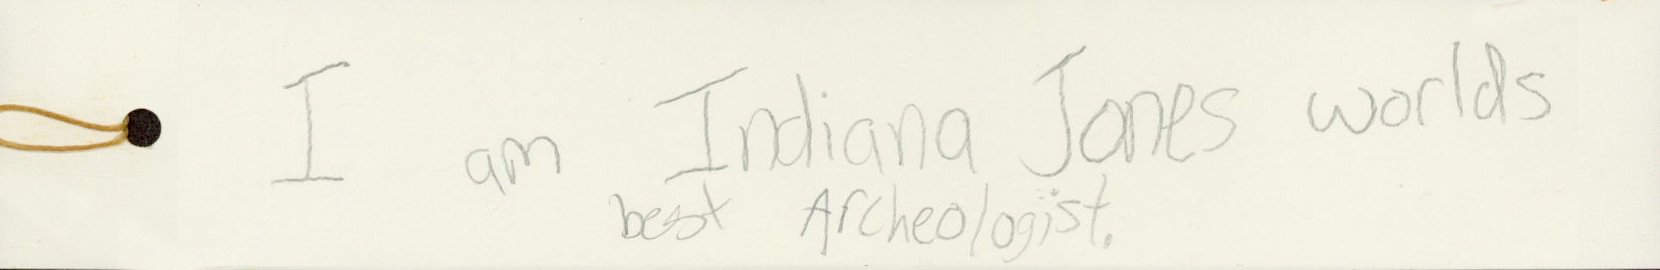 I am Indiana Jones worlds
best Archeologist.